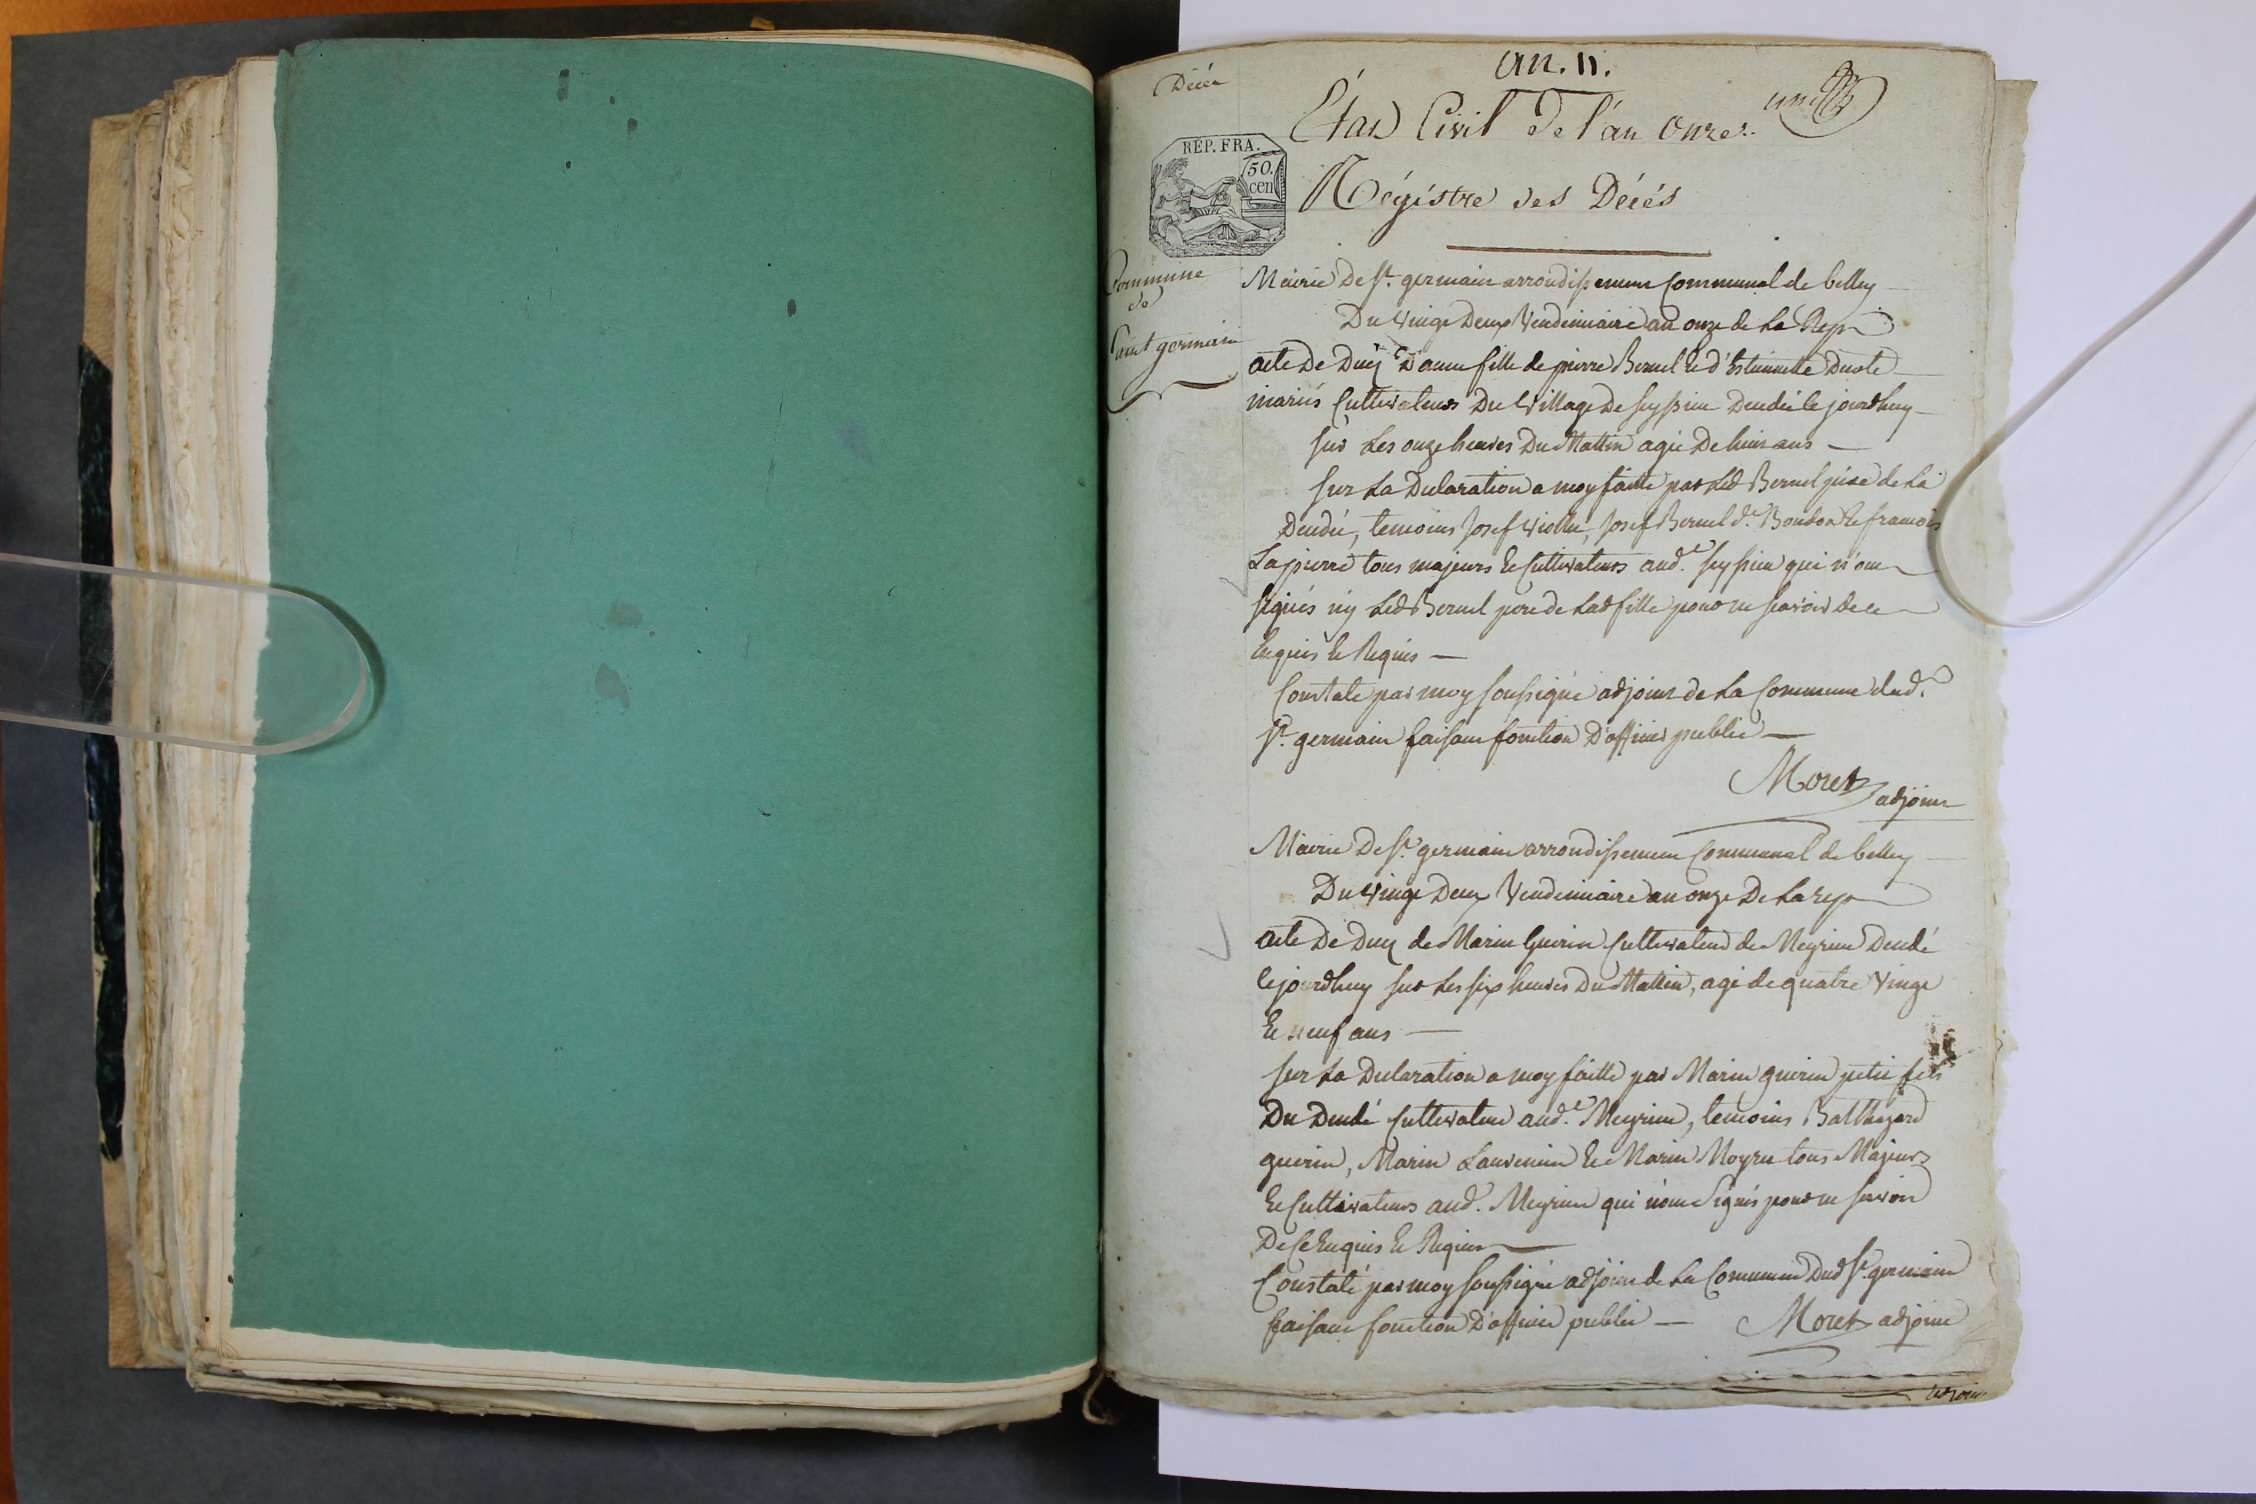 Décés
an. 11.
État Civil de l'an Onze
un
REP. FRA.
50.
cen
Régistre des Décés
Commune
de
Saint germain
Mairie De St. germain arrondissement Communal de belley
Du vingt Deux Vendemiaire an onze de la Rep
acte De Decez D'anne fille de pierre Bernel et d'Estiennette
mariés Cultivateurs Du Village De seyssieu Decedée le jourdhuy
sur les onze heures Du Mattin agée De huit ans
sur la Declaration a moy faitte par led Bernel père de la
Decedée, temoins Josef Josef Bernel d. et francois
Lapierre tous majeurs et Cultivateurs aud. seyssieu qui n'ont
signés ny led Bernel pere de lad fille pour ne scavoir de ce
Enquis et Requis
Constaté par moy soussigné adjoint de la Commune dud.
St. germain faisant fonction D'officier public
Moret
adjoint
Mairie De St. germain arrondissement Communal de belley
Du vingt Deux Vendemiaire an onze De la rep
acte De Decez de Marin Guerin Cultivateur de Meyrieu Decedé
lejourdhuy sur les six heures Du Mattin, agé de quatre Vingt
et neuf ans
sur la Declaration a moy faitte par Marin guerin petit fils
Du Decedé Cultivateur aud. Meyrieu, temoins Balthazard
guerin, Marin et Marin tous Majeurs
et Cultivateurs aud. Meyrieu qui n'ont Signés pour ne scavoir
De ce Enquis et Requis
Constaté par moy soussigné adjoint de la Commune Dud St. germain
faisant fonction D'officier public Moret adjoint